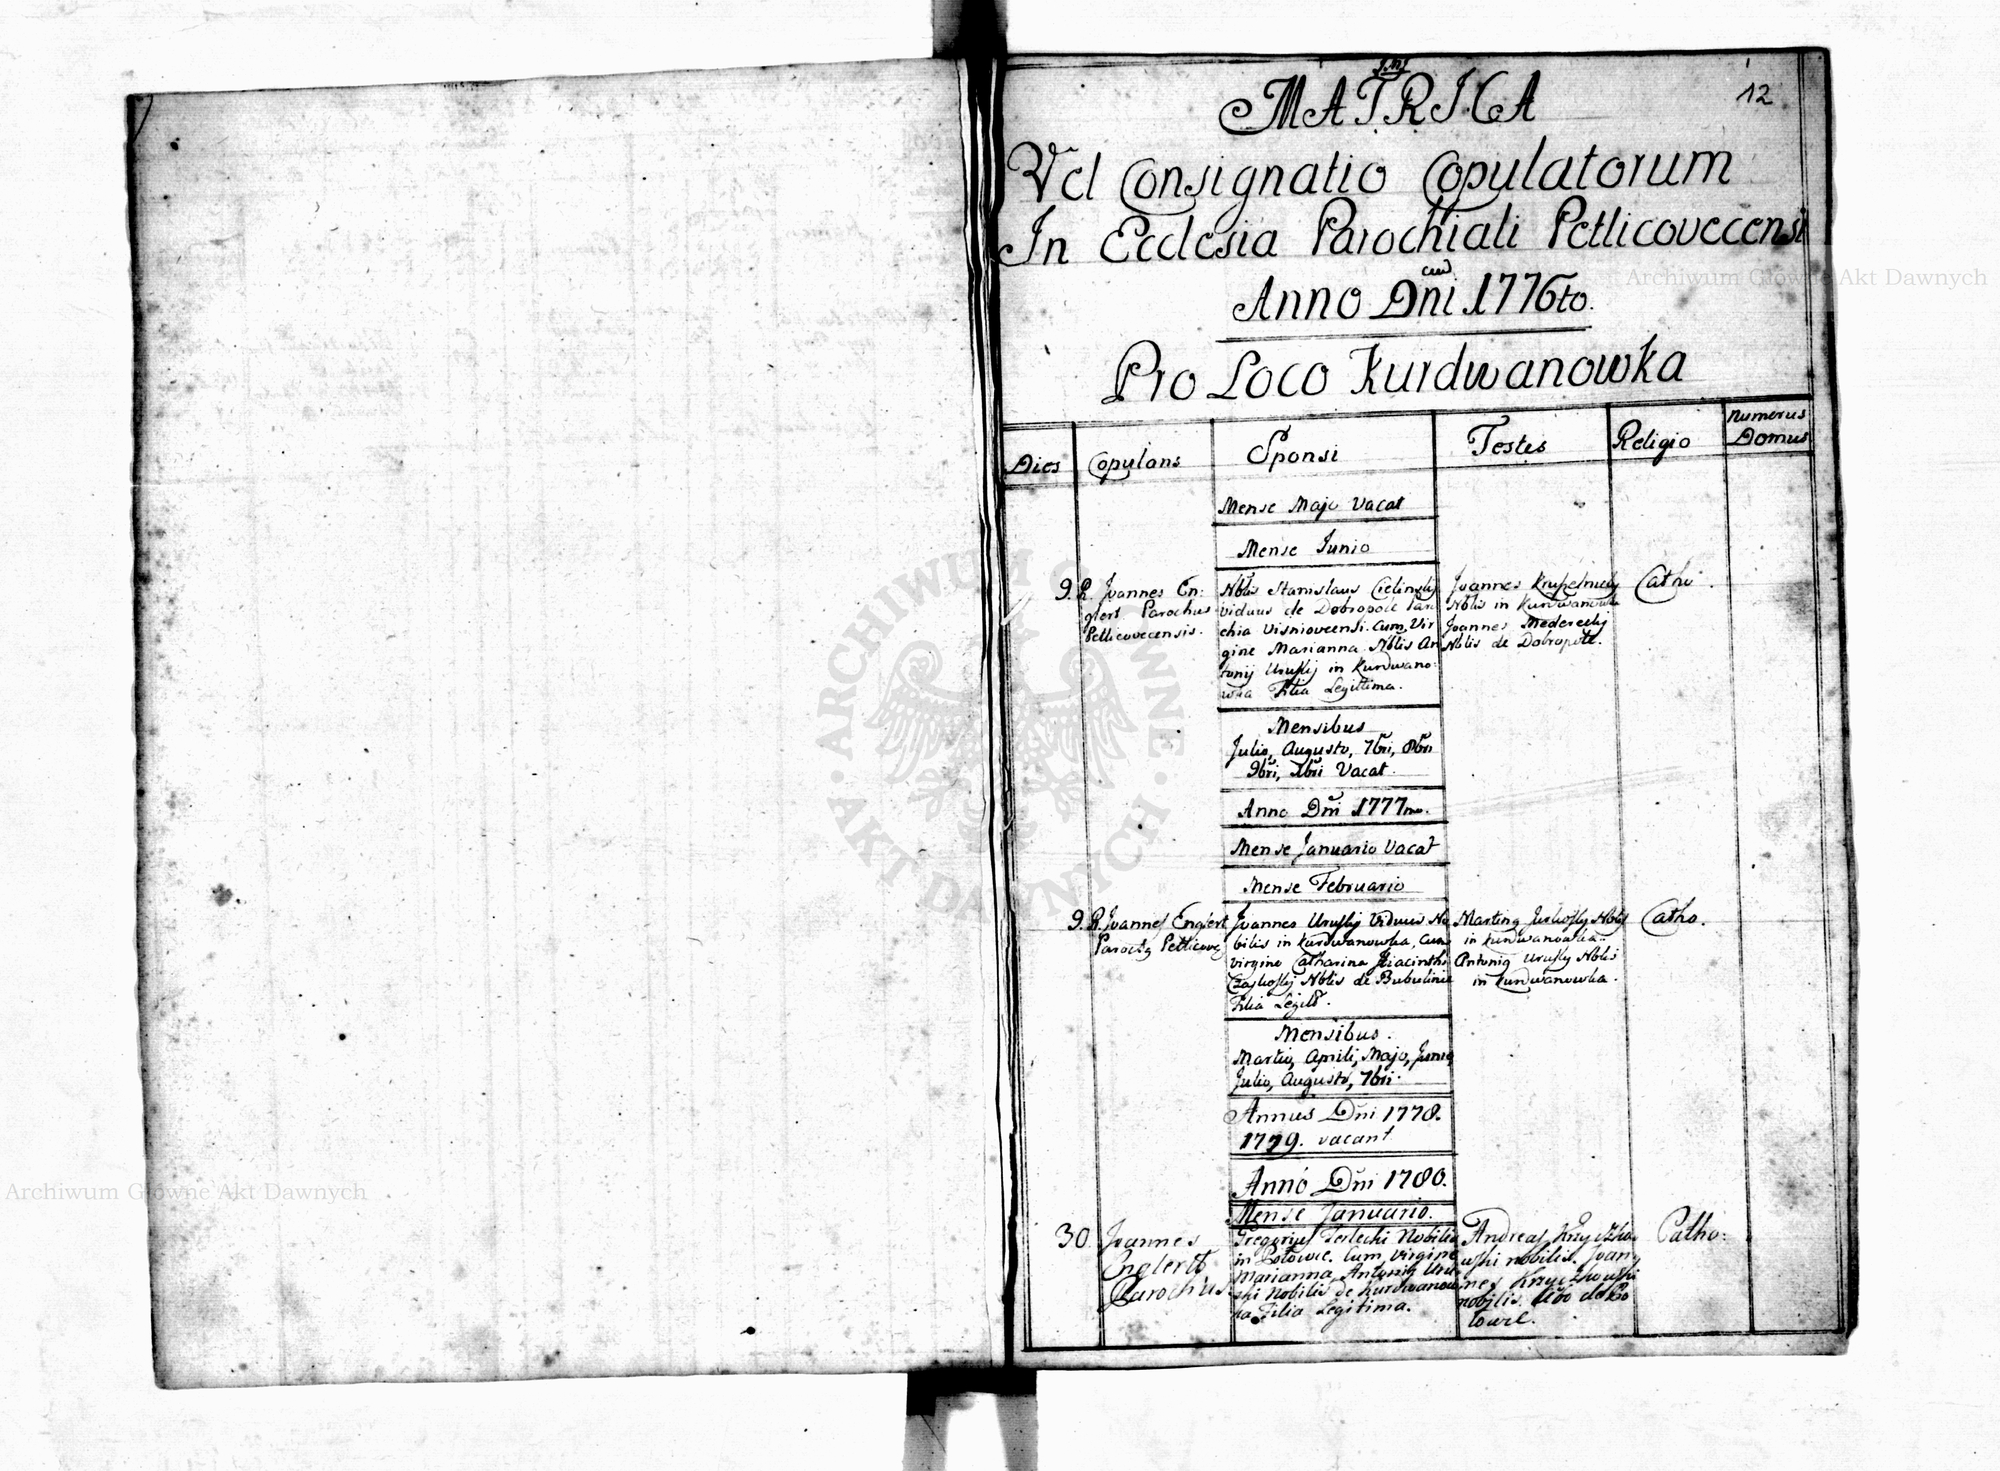 12
MATRICA
Vel Consignatio Copulatorum
In Ecclesia Parochiali Petlicovecensi
Anno Dni 1776to.
Pro Loco Kurdwanowka
Dies Copulans Sponsi Testes Religio Numerus Domus
Mense Majo Vacat
Mense Junio
9. R. Joannes En:
glert Parochus
Petlicovecensis.
Nblis Stanislaus Cielinskij
viduus de Dobropole Paro
chia Visniovecensi. Cum Vir
gine Marianna Nblis An
tonij Uruskij in Kurdwano:
wka Filia Legittima.
Joannes
Nblis in Kurdwanowka
Joannes Mederecky
Nblis de Dobropole.
Catho.
Mensibus
Julio, Augusto, 7bri, 8bri
9bri, Xbri Vacat.
Anno Dni 1777mo.
Mense Januario Vacat
Mense Februario
9. R. Joannes Englert
Parochg Petlicoveg
Joannes Uruskij Viduus No
bilis in Kurdwanowka, Cum
virgine Catharina Hiacinthi
Nblis de Bubulinie
Filia
Marting Nblis
in Kurdwanowka.
Antonig Urusky Nblis
in Kurdwanowka.
Catho.
Mensibus.
Martio, Aprili, Majo, Junio,
Julio, Augusto, 7bri.
Annus Dni 1778.
1779. vacant
Anno Dni 1780.
Mense Januario.
30 Joannes
Englert
Parochus.
Gregorius Terlecki Nobilis
in Potowce. Cum Virgine
Marianna Antonig Uru
ski Nobilis de Kurdwanow
ka Filia Legitima.
Andreas Krzyczko
wski nobilis. Joan
nes Krzyczkowski
nobilis. de Po
towce.
Catho:
Archiwum Główne Akt Dawnych
Archiwum Główne Akt Dawnych
ARCHIWUM GŁÓWNE · AKT DAWNYCH ·